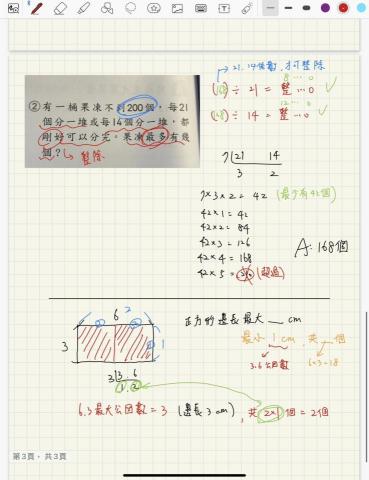 21.14倍數,才可整除
②有一桶果凍不到200個,每21
個分一堆或每14個分一堆,都
剛好可以分完。果凍最多有幾
個?
整除
8 … 0
(168) ÷ 21 = 整…0
12 … 0
(168) ÷ 14 = 整…0
7 21 14
3 2
7×3×2 = 42 (最少有42個)
42×1 = 42
42×2 = 84
42×3 = 126
42×4 = 168
42×5 = 210 (超過)
A: 168個
6
2
3
1
正方形邊長最大 __ cm
最小 1 cm, 共 _ 個
3.6公因數
6×3=18
3 3 . 6
1 . 2
6.3最大公因數 = 3 (邊長3 cm), 共 2×1 個 = 2個
第3頁,共3頁